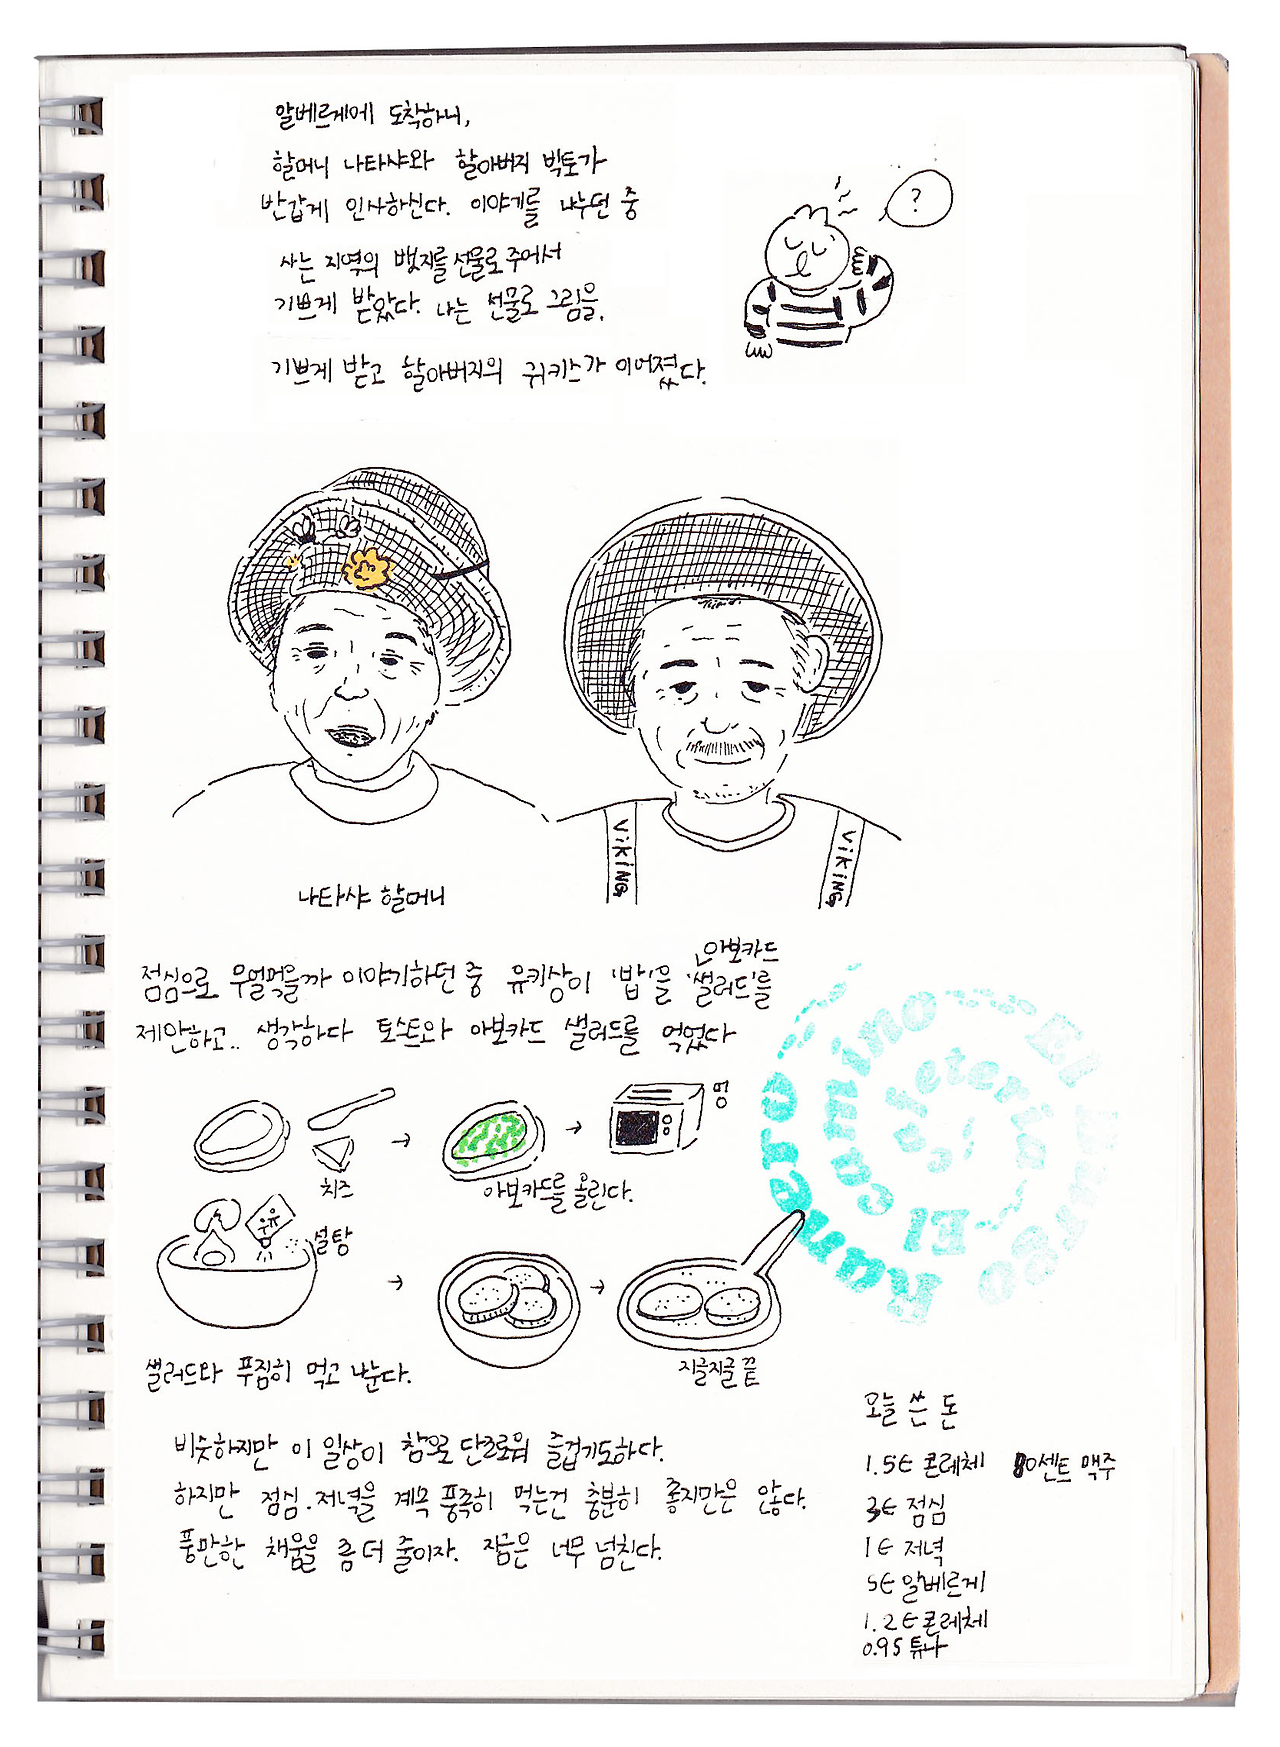 알베르게에 도착하니,
할머니 나타샤와 할아버지 빅토가
반갑게 인사하신다. 이야기를 나누던 중
사는 지역의 뱃지를 선물로 주어서
기쁘게 받았다. 나는 선물로 그림을.
기쁘게 받고 할아버지의 귀키스가 이어졌다.
?
ViKiNG
ViKiNG
나타샤 할머니
아보카드
점심으로 무얼먹을까 이야기하던 중 유키상이 '밥'을 '샐러드'를
제안하고.. 생각하다 토스트와 아보카드 샐러드를 먹었다
치즈
→
아보카드를 올린다.
→
띵
우유
설탕
→
→
지글지글 끝
샐러드와 푸짐히 먹고 나눈다.
비슷하지만 이 일상이 참으로 단조로워 즐겁기도하다.
하지만 점심.저녁을 계속 풍족히 먹는건 충분히 좋지만은 않다.
풍만한 채움을 좀 더 줄이자. 지금은 너무 넘친다.
El Burgo Ranero
El Camino
Cafeteria
오늘 쓴 돈
1.5€ 콘레체 80센트 맥주
3€ 점심
1€ 저녁
5€ 알베르게
1.2€ 콘레체
0.95 튜나